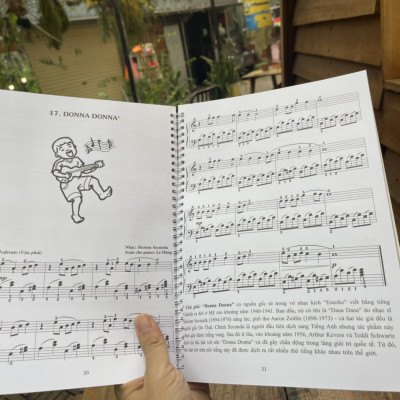 17. DONNA DONNA*
Moderato (Vừa phải)
Nhạc: Sholom Secunda
Soạn cho piano: Lê Dũng
30
* Chú giải: "Donna Donna" có nguồn gốc từ trong vở nhạc kịch "Esterke" viết bằng tiếng
Yiddish ra đời ở Mỹ vào khoảng năm 1940-1941. Ban đầu, nó có tên là "Dana Dana" do nhạc sĩ
Sholom Secunda (1894-1974) sáng tác, phổ thơ Aaron Zeitlin (1898-1973) – cả hai tác giả đều là
người gốc Do Thái. Chính Secunda là người đầu tiên dịch sang Tiếng Anh nhưng tác phẩm này
vẫn chưa được nổi tiếng. Sau đó ít lâu, vào khoảng năm 1956, Arthur Kevess và Teddi Schwartz
dịch lại lời bài hát "Donna Donna" và đã gây chấn động trong làng giải trí quốc tế. Từ đó,
bài hát trở nên nổi tiếng này đã được dịch ra rất nhiều thứ tiếng khác nhau trên thế giới.
31